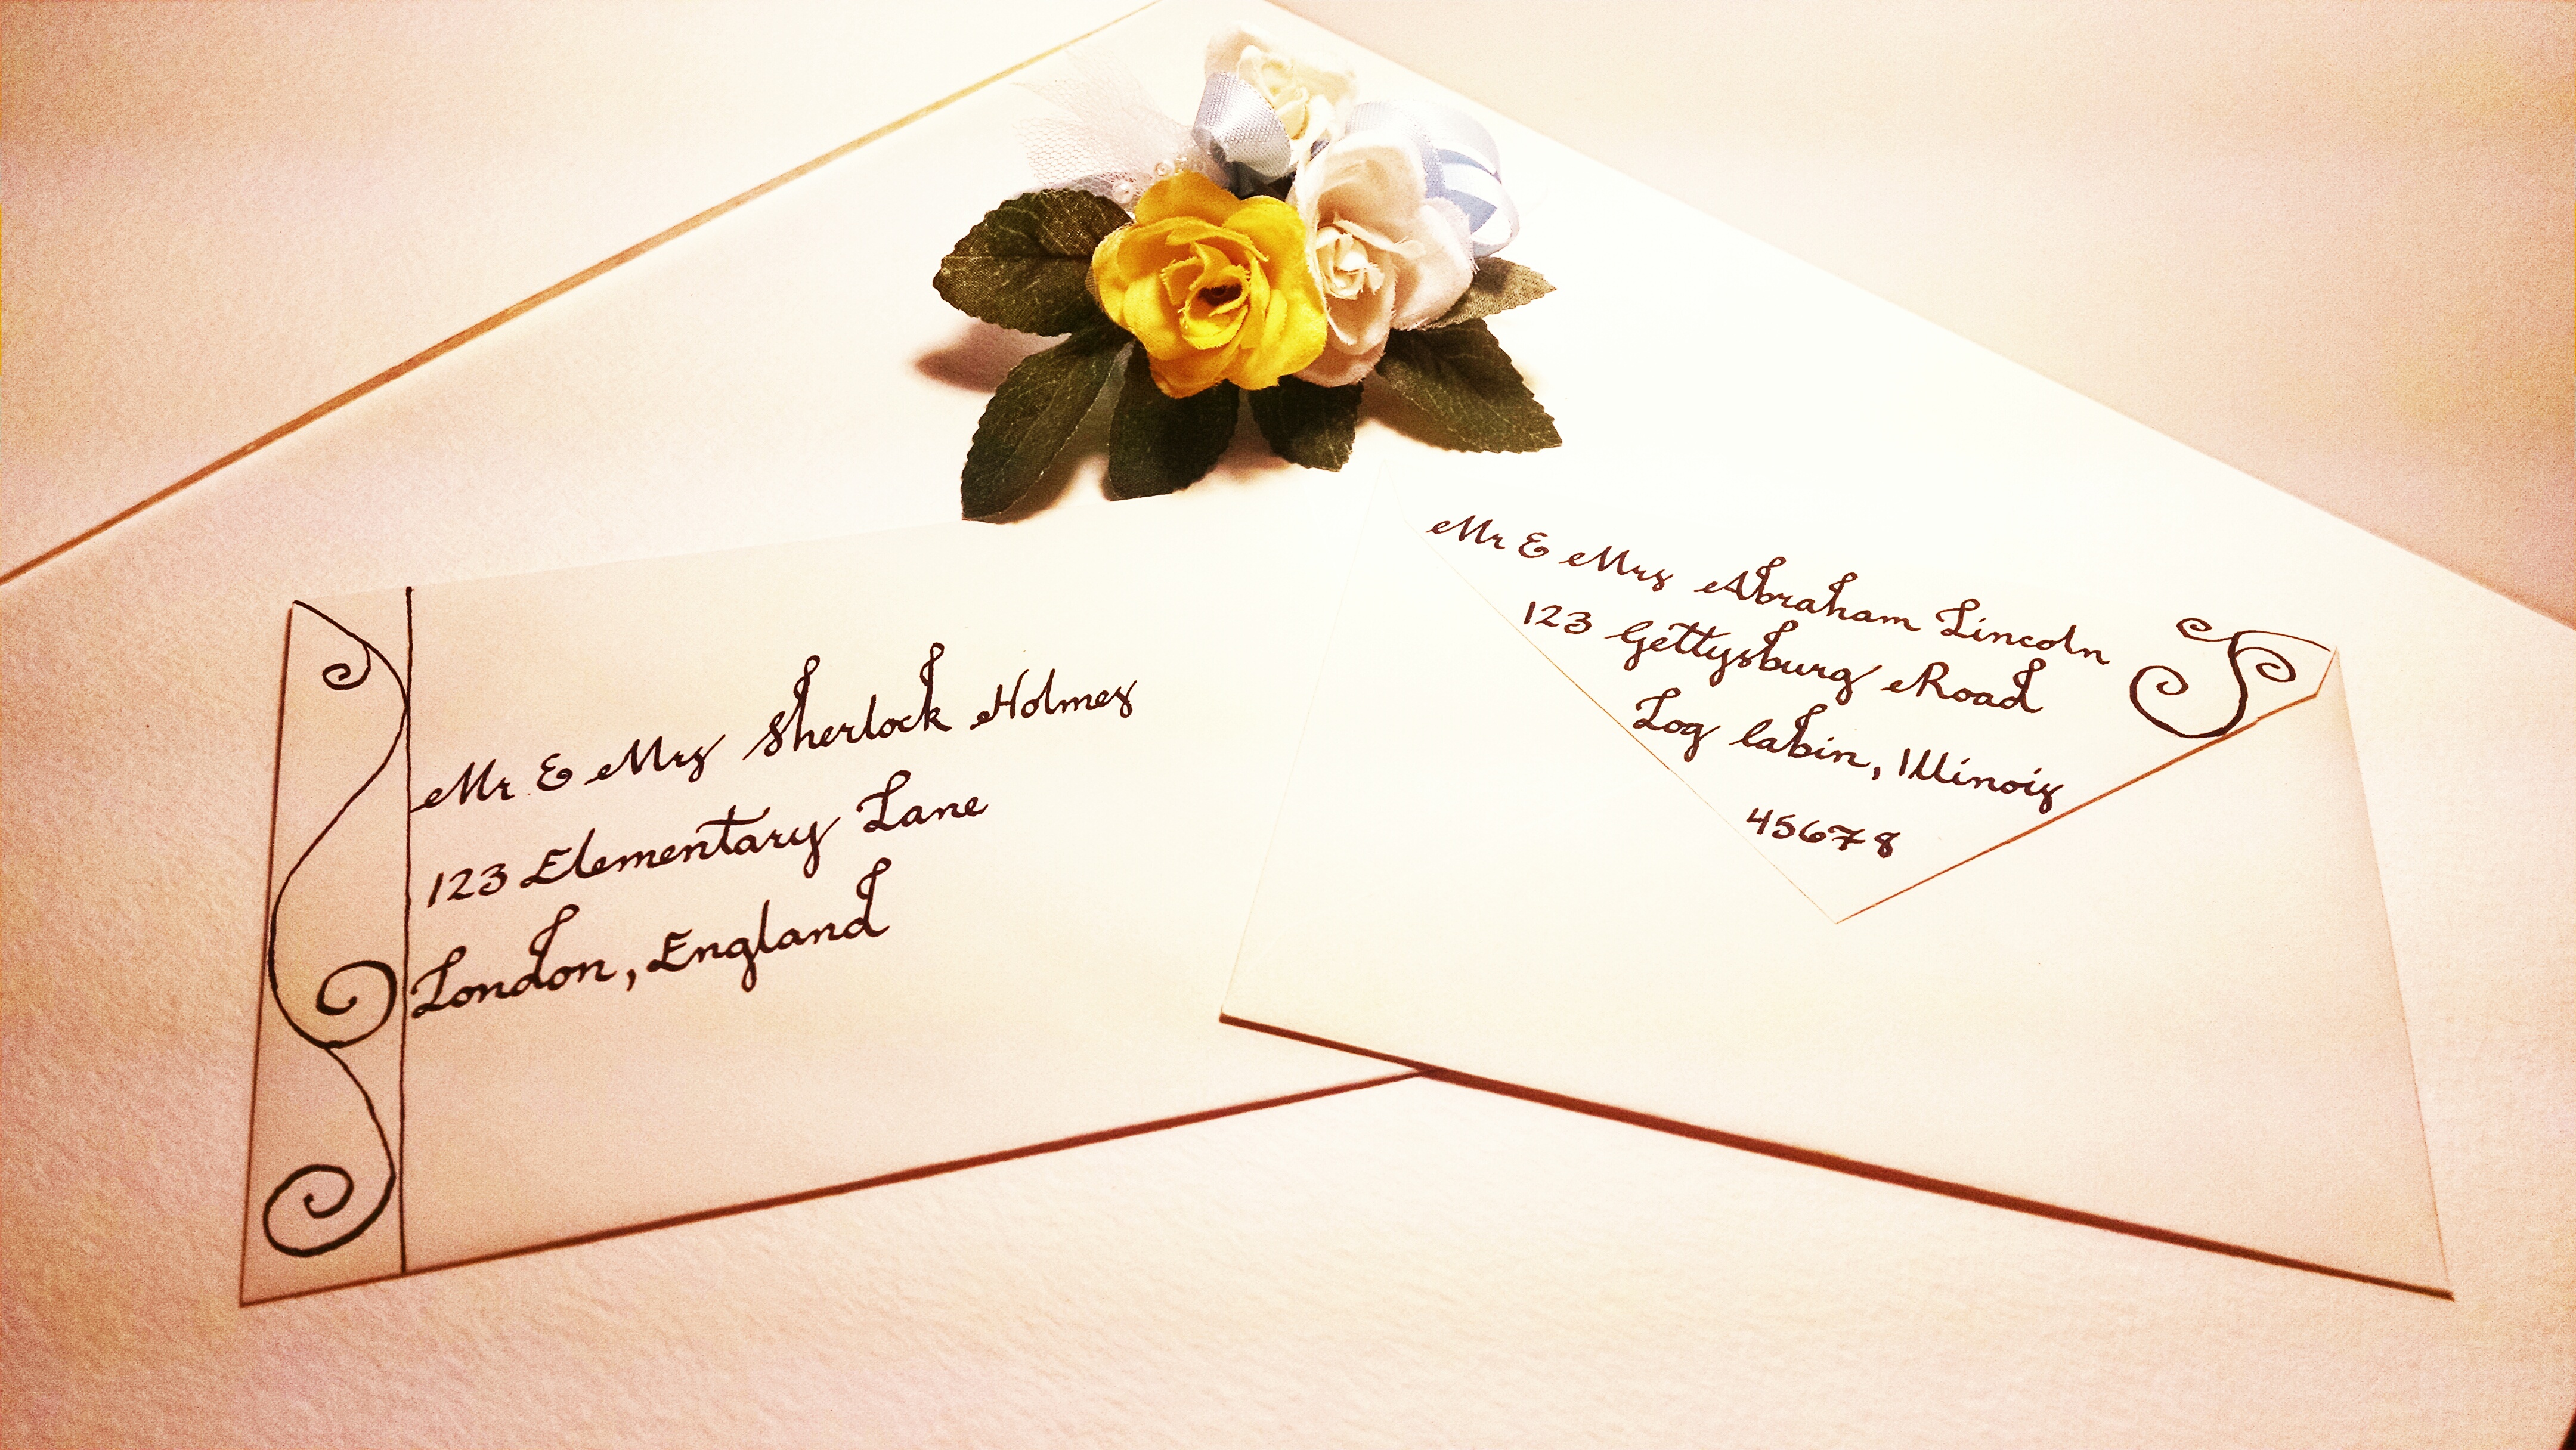 Mr & Mrs Sherlock Holmes
123 Elementary Lane
London, England
Mr & Mrs Abraham Lincoln
123 Gettysburg Road
Log Cabin, Illinois
45678